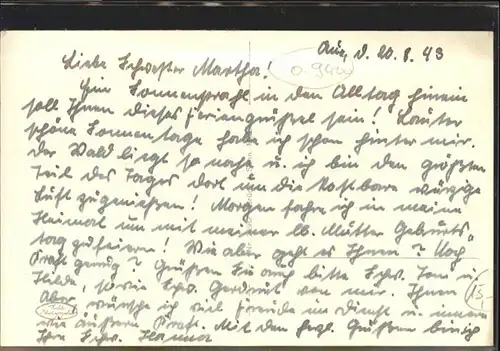 Aue, d. 20.8.43
Liebe Schwester Martha!
Ein Sonnenstrahl in den Alltag hinein
soll Ihnen dieses Feriengrüssel sein! Lauter
schöne Sonnentage habe ich schon hinter mir.
Der Wald liegt so nahe u. ich bin den größten
Teil des Tages dort um die kostbare würzige
Luft zu genießen! Morgen fahre ich in meine
Heimat um mit meiner lb. Mutter Geburts-
tag zu feiern! Wie aber geht es Ihnen? Noch
Kraft genug? Grüßen Sie auch bitte Schw. Toni u.
Hilde, sowie Schw. Gertrud von mir. Ihnen
Aber wünsche ich viel Freude im Dienst u. innere
wie äußere Kraft. Mit den herzl. Grüßen bin ich
Ihre Schw. Hanna